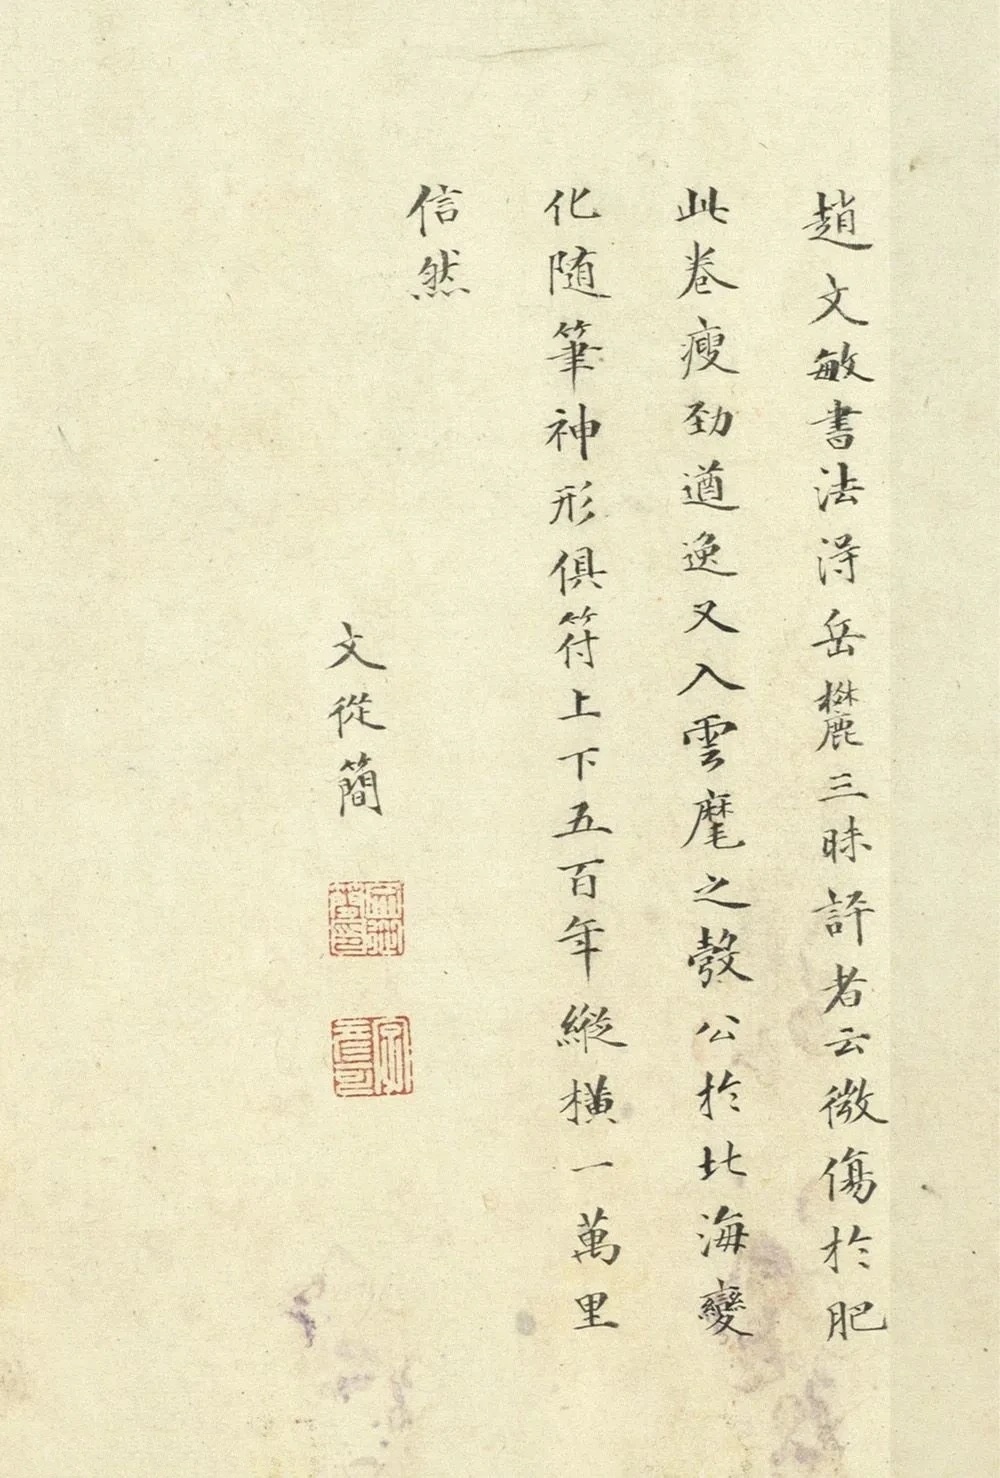 趙文敏書法得岳麓三昧評者云微傷於肥
此卷瘦勁遒逸又入雲麾之彀公於北海變
化随筆神形俱符上下五百年縱橫一萬里
信然
文從簡
字彥可